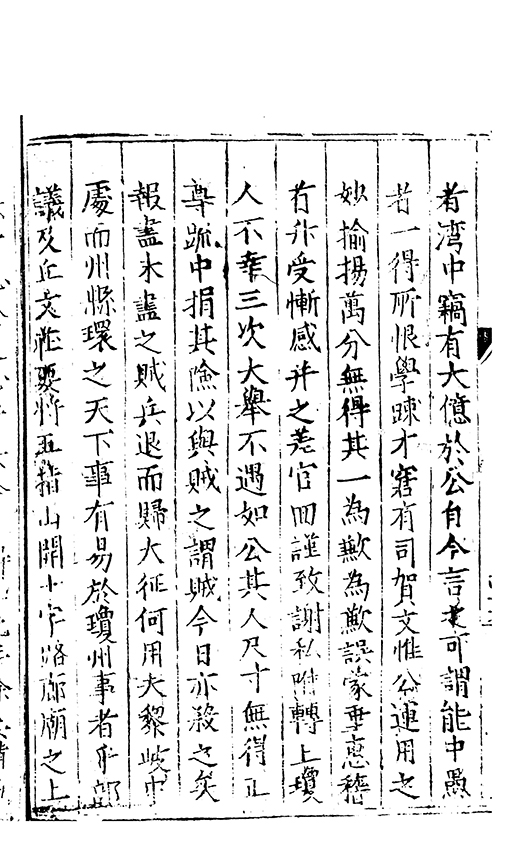 者灣中竊有大億於公自今言之可謂能中愚
者一得所恨學踈才窘有司賀文惟公運用之
妙揄揚萬分無得其一為歉為歉誤蒙垂惠稽
首升受慚感并之差官回謹致謝私附轉上瓊
人不幸三次大舉不遇如公其人尺寸無得正
尊䟽中捐其險以與賊之謂賊今日亦殺之矣
報盡未盡之賊兵退而歸大征何用夫黎岐中
處而州縣環之天下事有易於瓊州事者乎部
議及丘文莊要將五指山開十字路廊廟之上